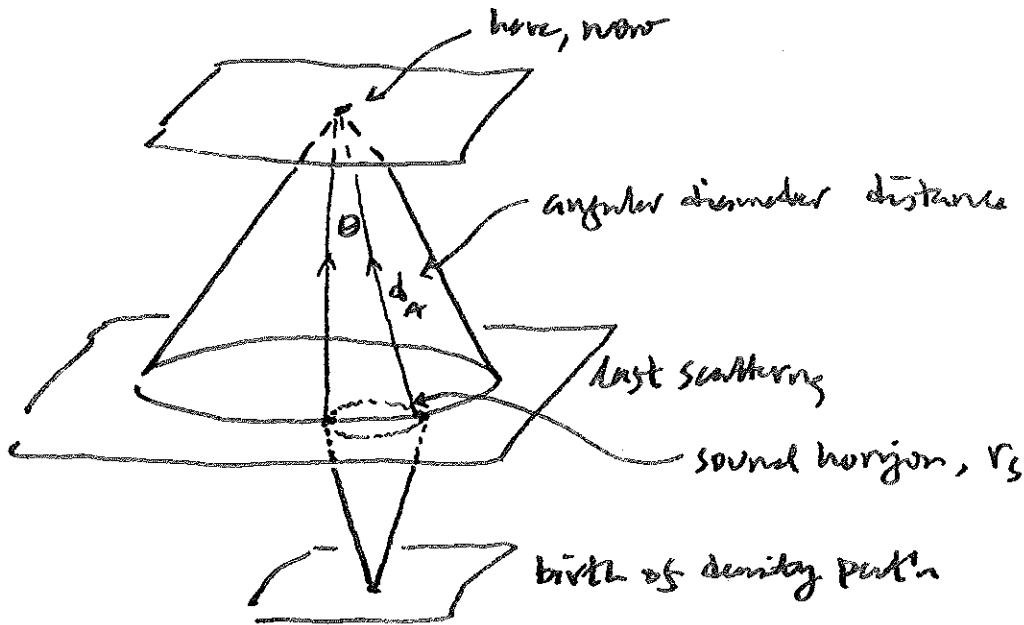 here, now
angular diameter distance
θ
d_A
last scattering
sound horizon, r_s
birth of density pert'n